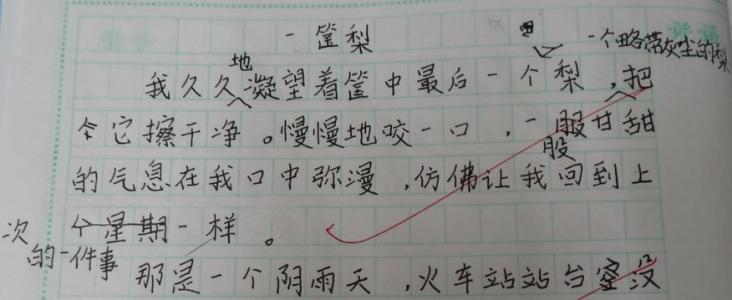 一筐梨
一个略带灰尘的梨
地
我久久凝望着筐中最后一个梨，把
它擦干净。慢慢地咬一口，一服甘甜
股
的气息在我口中弥漫，仿佛让我回到上
次个星期一样。
的一件事
那是一个阴雨天，火车站站台没